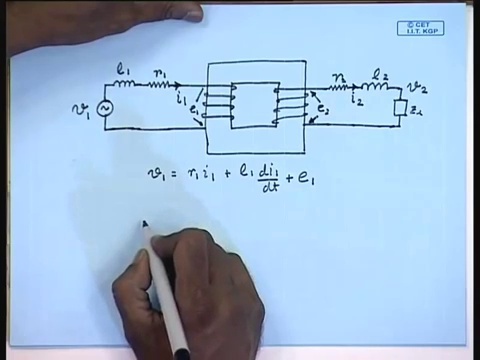 © CET
I.I.T. KGP
l₁ r₁ r₂ l₂
v₁ i₁ e₁ e₂ i₂ v₂
Z_L
v₁ = r₁ i₁ + l₁ di₁/dt + e₁